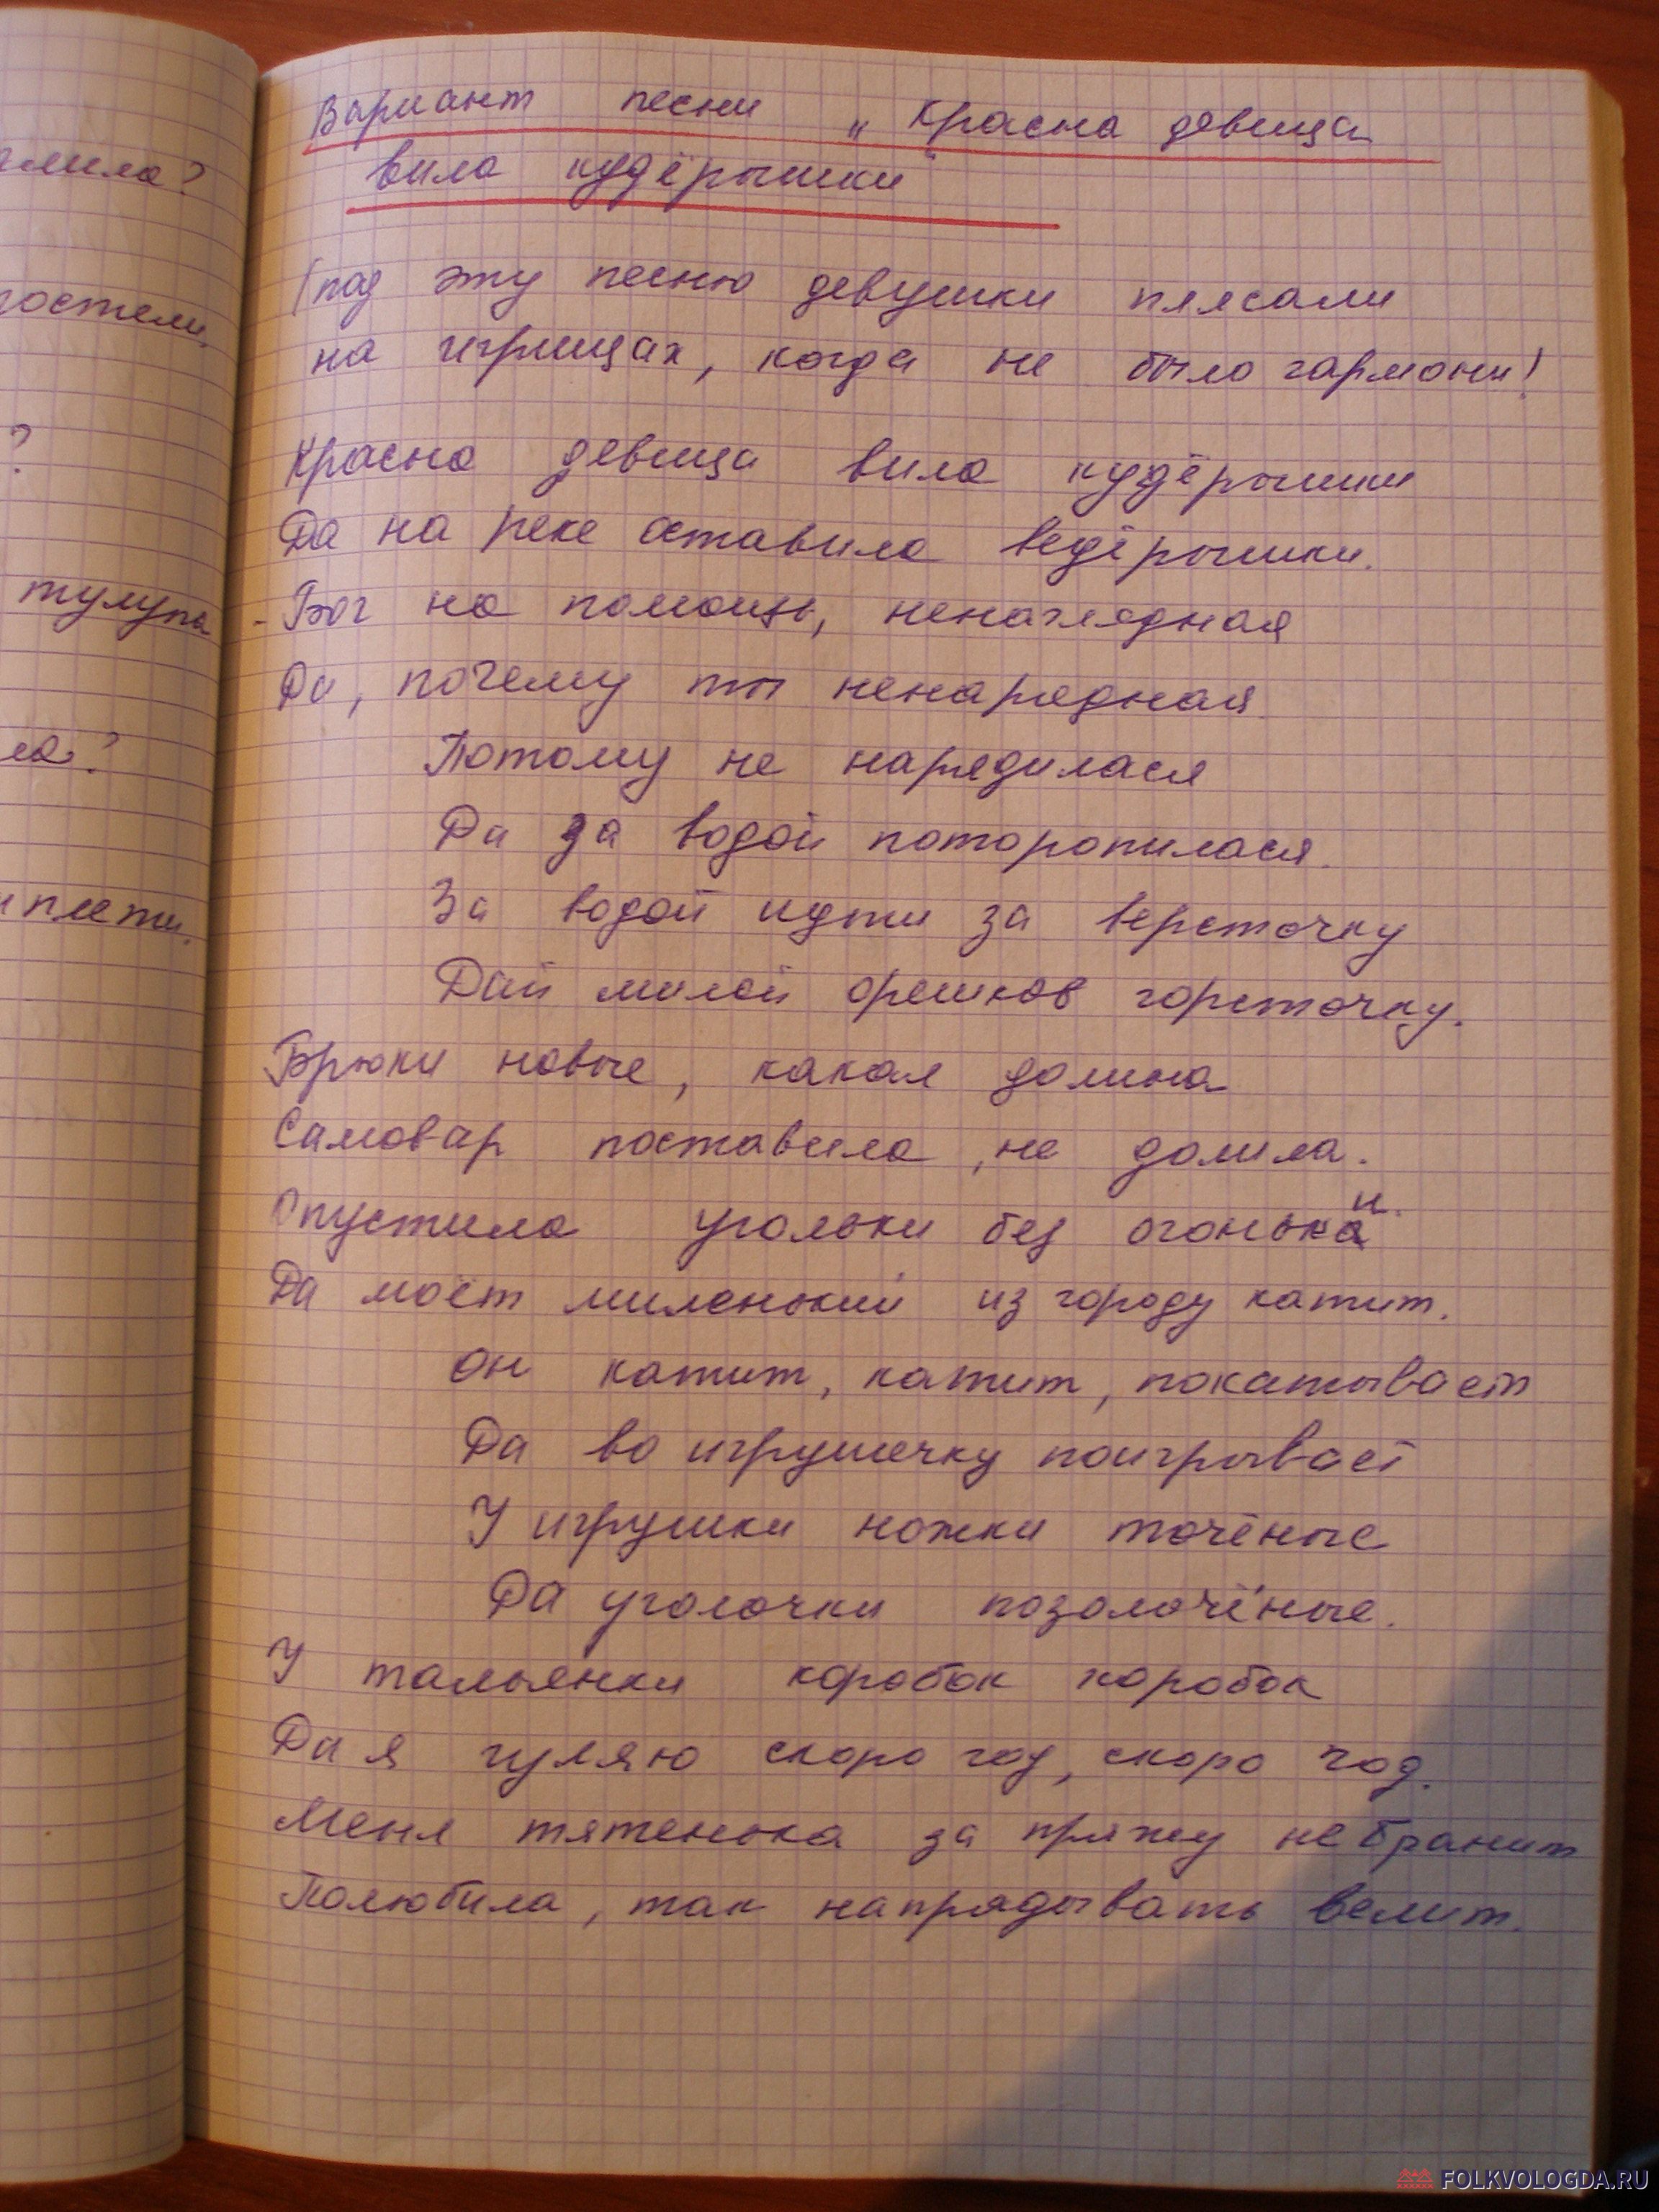 амила?
постели.
?
тулупа
ла?
и плети.
Вариант песни „Красна девица
вила кудёрышки"
(под эту песню девушки плясали
на игрищах, когда не было гармони)
Красна девица вила кудёрышки
Да на реке оставила ведёрышки.
- Бог на помощь, ненаглядная
Да, почему ты ненарядная
Потому не нарядилася
Да за водой поторопилася.
За водой идти за версточку
Дай милой орешков горсточку.
Брюки новые, какая долина
Самовар поставила, не долила.
Опустила угольки без огонька и.
Да моёт миленький из городу катит.
Он катит, катит, покатывает
Да во игрушечку поигрывает
У игрушки ножки точёные
Да уголочки позолочёные.
У тальянки коробок коробок
Да я гуляю скоро год, скоро год.
Меня тятенька за пряжу не бранит
Полюбила, так напрядывать велит.
FOLKVOLOGDA.RU